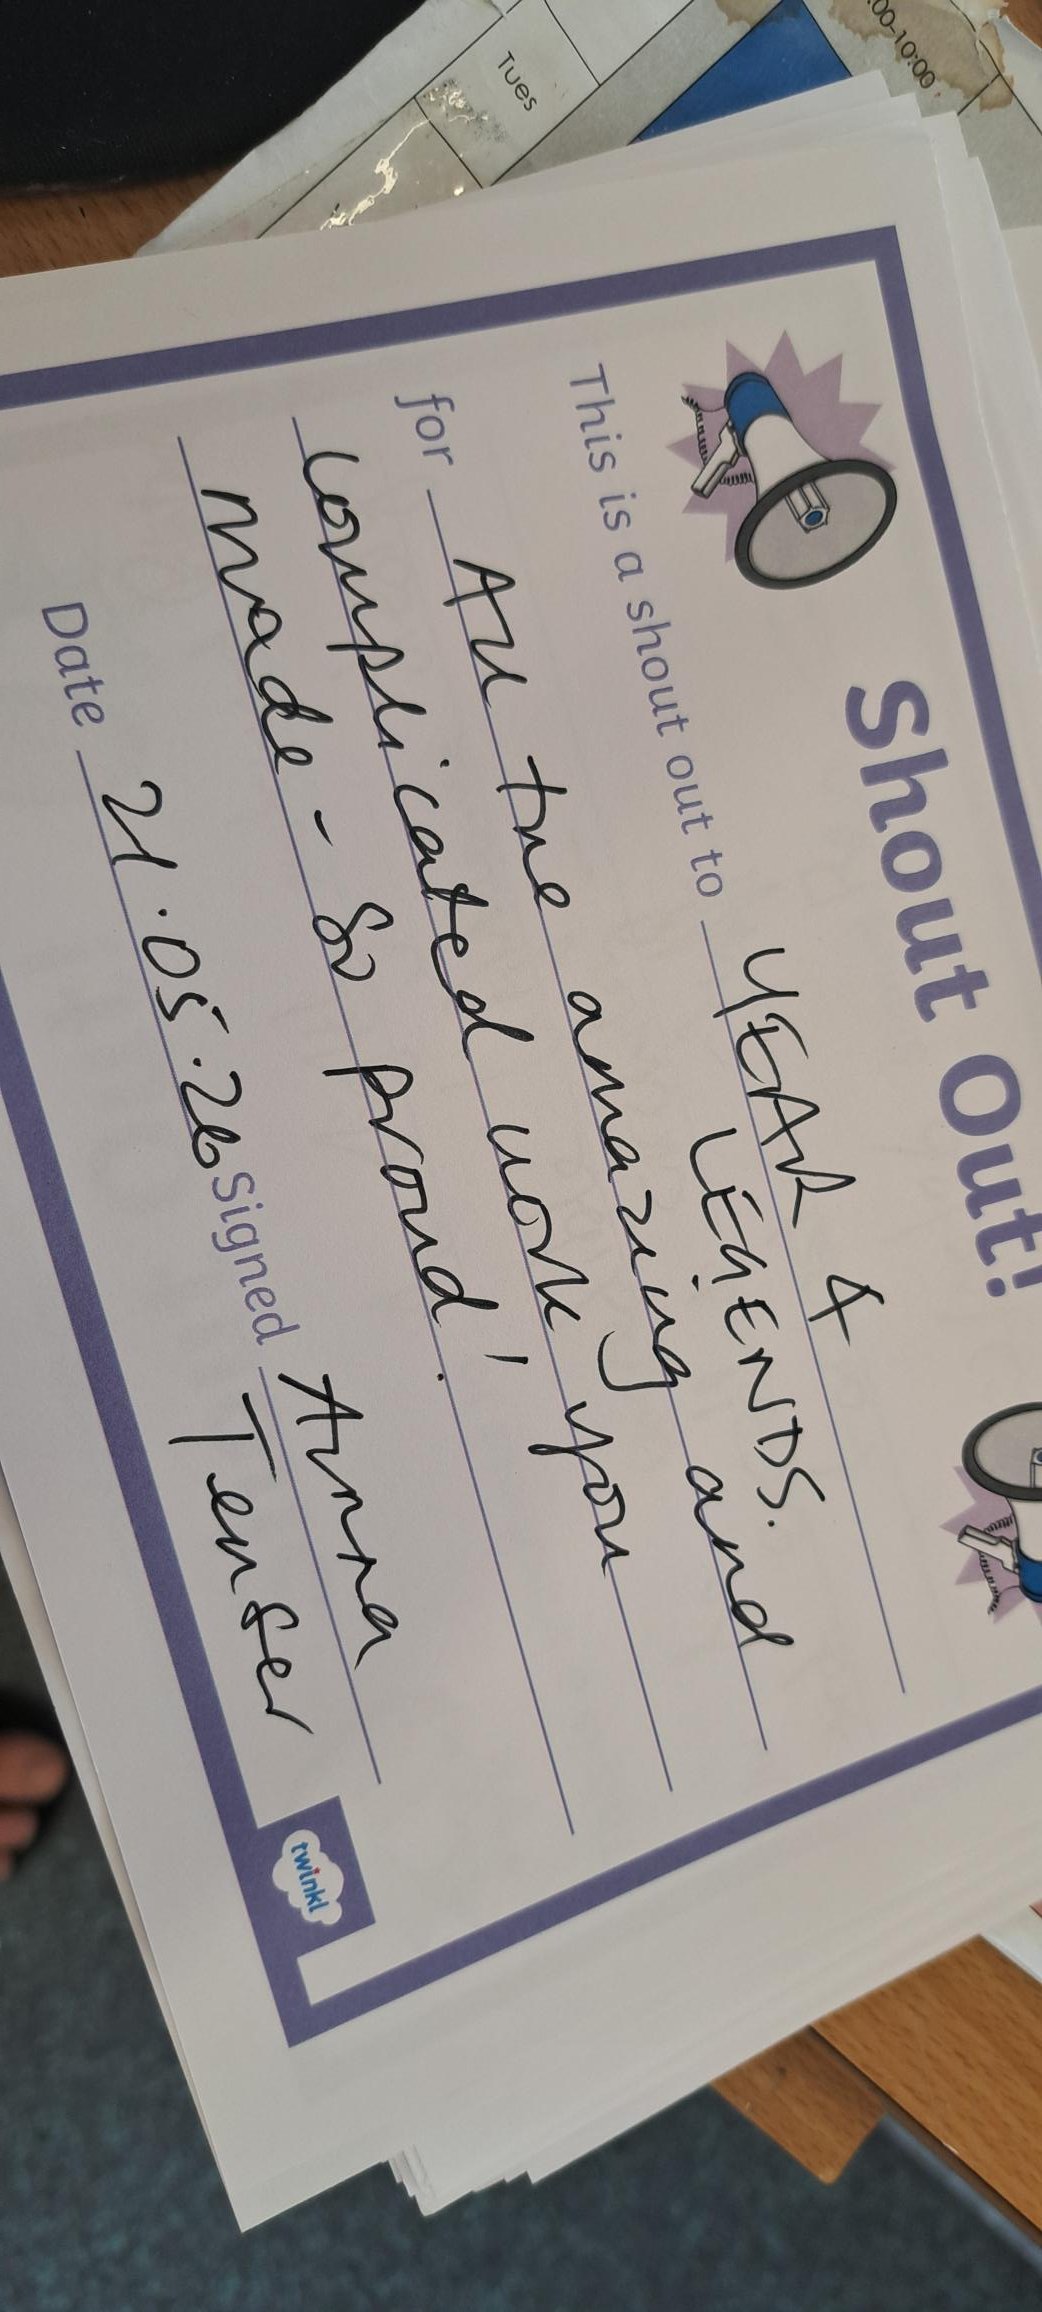 Tues
:00-10:00
Shout Out!
This is a shout out to YEAR 4
LEGENDS.
for All the amazing and
complicated work you
made - so proud!
Date 21.05.26 Signed Anna
twinkl